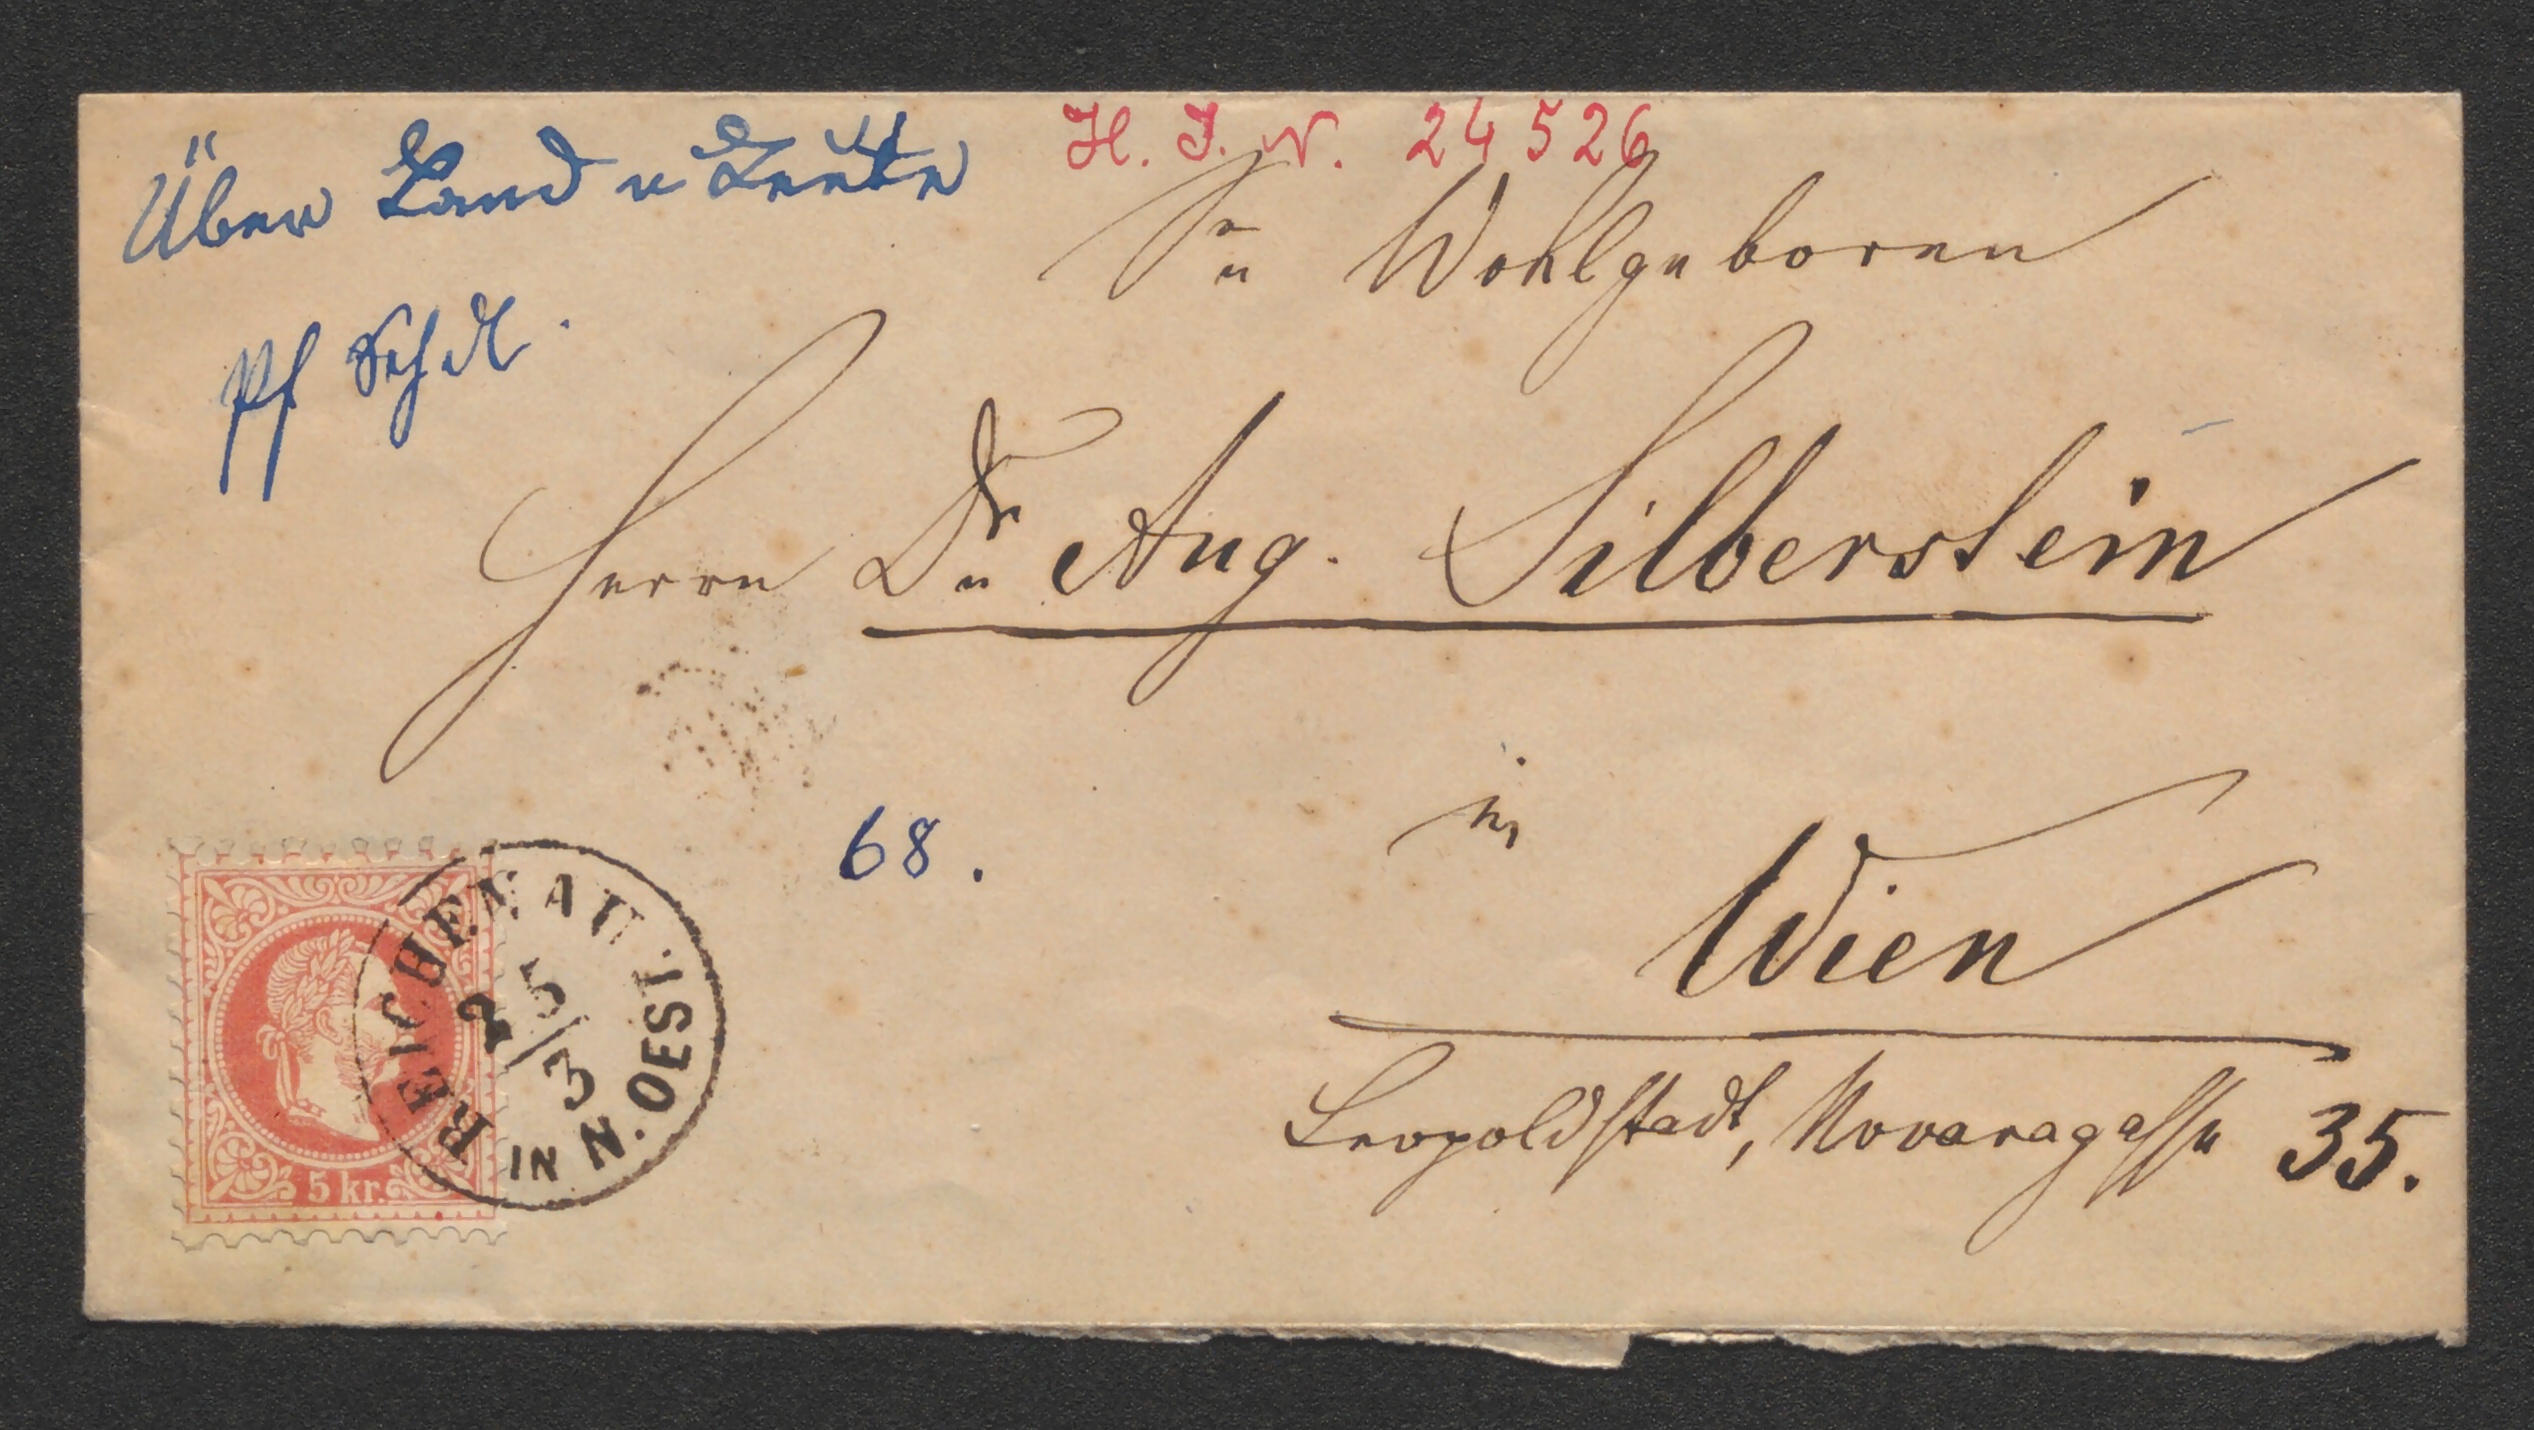 Über Land u Leute
H. I. N. 24526
Sr Wohlgeboren
Herrn Dr Aug. Silberstein
68.
in
Wien
Leopoldstadt, Novaragasse 35.
REICHENAU
25/3
IN N. OEST.
5 kr.